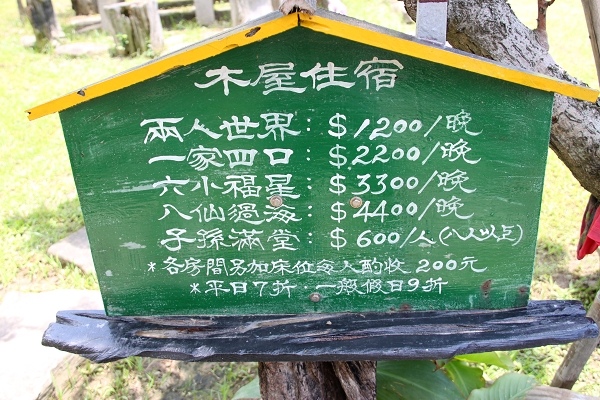 木屋住宿
兩人世界：$1200/晚
一家四口：$2200/晚
六小福星：$3300/晚
八仙過海：$4400/晚
子孫滿堂：$600/人(八人以上)
*各房間另加床位每人酌收200元
*平日7折．一般假日9折